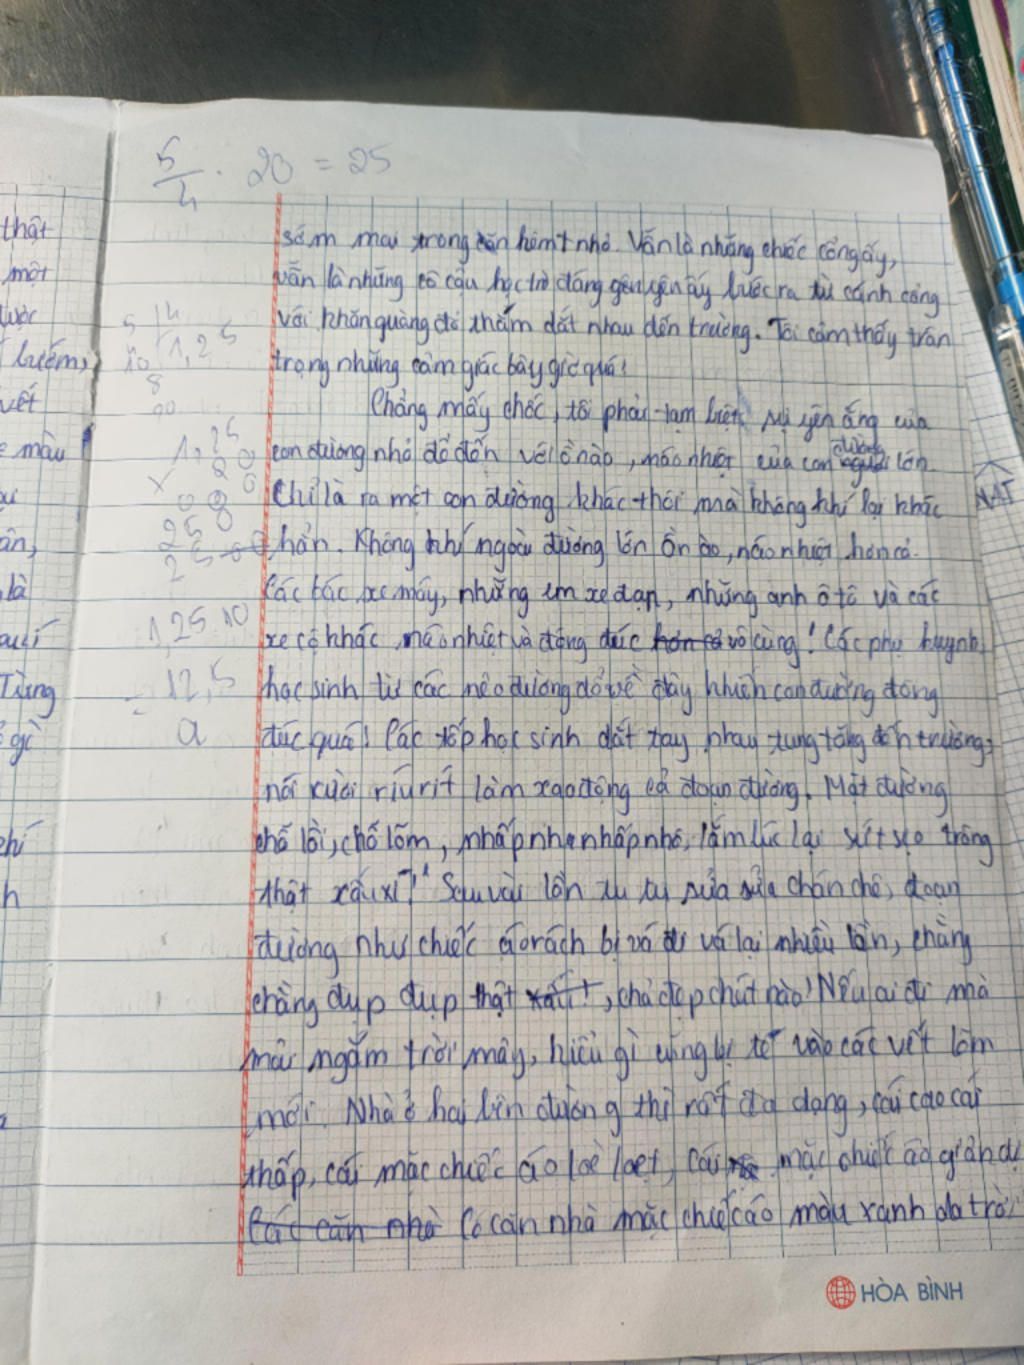 5/4 . 20 = 25
sớm mai trong căn hẻm nhỏ. Vẫn là những chiếc cổng ấy,
vẫn là những cô cậu học trò đáng yêu ấy bước ra từ cánh cổng
với khăn quàng đỏ thắm dắt nhau đến trường. Tôi cảm thấy trân
trọng những cảm giác bây giờ quá!
Chẳng mấy chốc, tôi phải tạm biệt sự yên ắng của
con đường nhỏ để đến với ồn ào, náo nhiệt của con đường lớn.
Chỉ là ra một con đường khác thôi mà không khí lại khác
hẳn. Không khí ngoài đường lớn ồn ào, náo nhiệt hơn cả.
Các bác xe máy, những em xe đạp, những anh ô tô và các
xe cộ khác náo nhiệt và đông đúc hơn cả vô cùng! Các phụ huynh,
học sinh từ các nẻo đường đổ về đây khiến con đường đông
đúc quá! Các tốp học sinh dắt tay nhau tung tăng đến trường,
nói cười ríu rít làm xao động cả đoạn đường. Mặt đường
chỗ lồi, chỗ lõm, nhấp nha nhấp nhô, lắm lúc lại sứt sẹo trông
thật xấu xí! Sau vài lần tu sửa sửa chán chê, đoạn
đường như chiếc áo rách bị vá đi vá lại nhiều lần, chằng
chằng đụp đụp thật xấu!, chả đẹp chút nào! Nếu ai đi mà
mải ngắm trời mây, hiểu gì cũng bị té vào các vết lõm
mới. Nhà ở hai bên đường thì rất đa dạng, cái cao cái
thấp, cái mặc chiếc áo loè loẹt, cái mặc chiếc áo giản dị
Các căn nhà Có căn nhà mặc chiếc áo màu xanh da trời
5 4
10 1,25
8
20
1,25
x 20
000
250
25 00
1,25.10
= 12,5
a
thật
một
được
bướm,
vết
màu
ân,
là
Từng
gì
chí
h
HÒA BÌNH